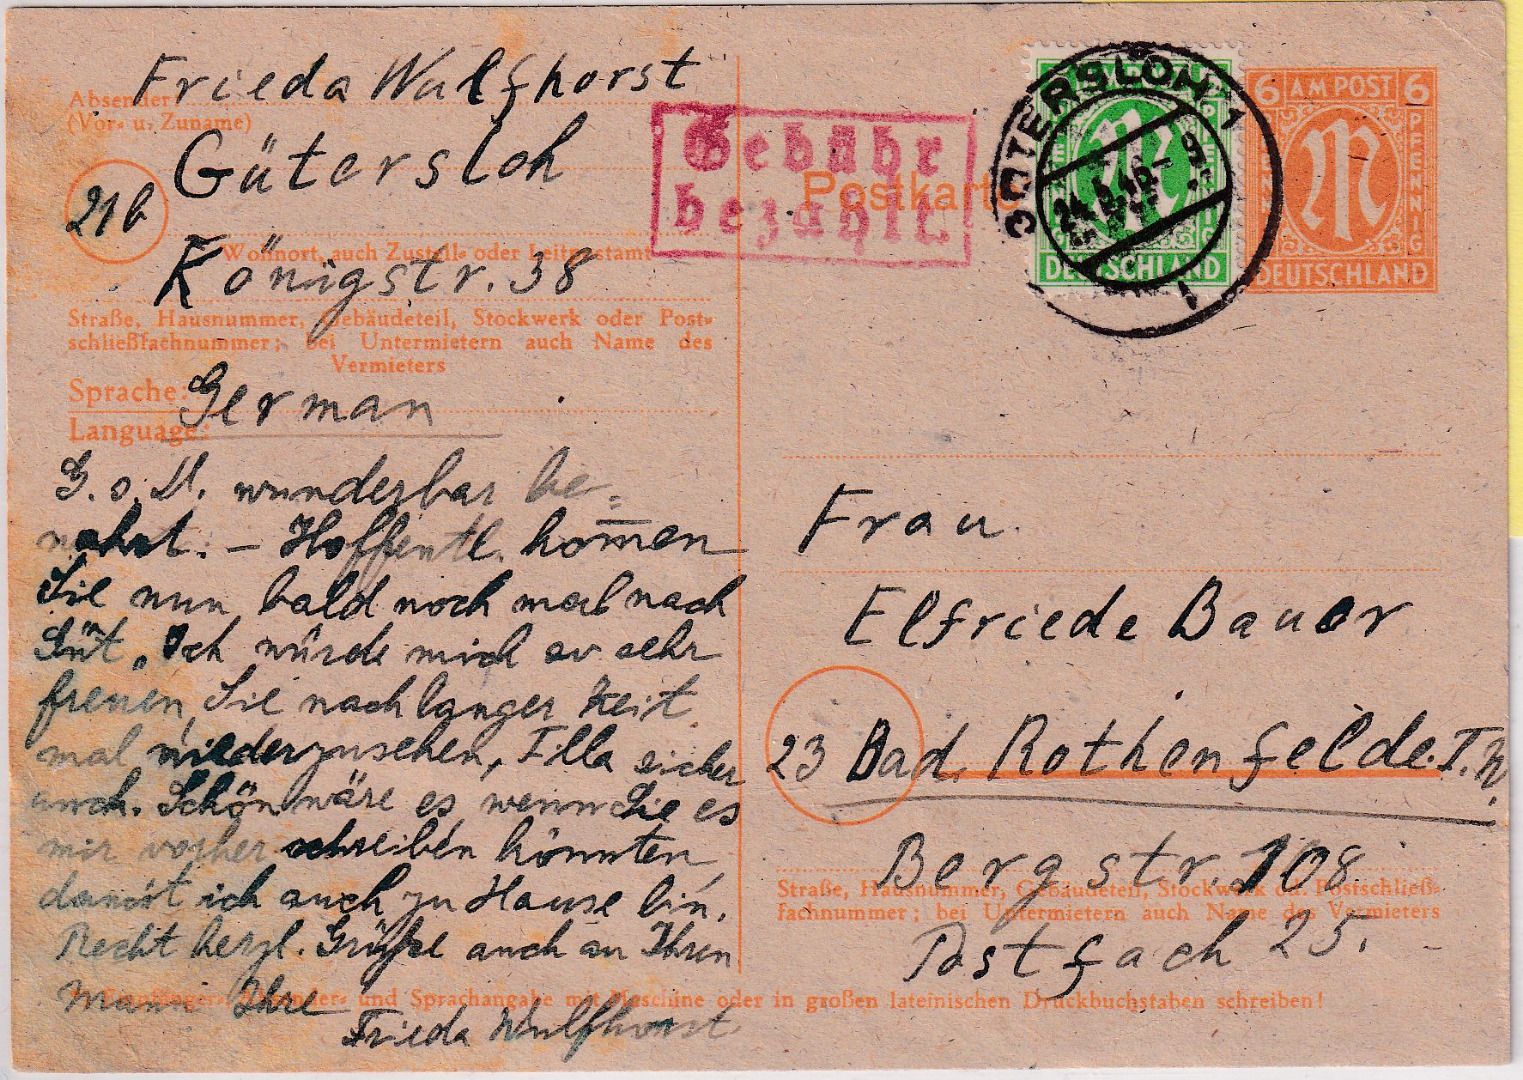 Frieda Wulfhorst
Absender
(Vor- u. Zuname)
Gütersloh
21b
Wohnort, auch Zustell- oder Leitpostamt
Königstr. 38
Straße, Hausnummer, Gebäudeteil, Stockwerk oder Post-
schließfachnummer; bei Untermietern auch Name des
Vermieters
Sprache:
German
Language:
G. s. D. wunderbar be-
wahrt. – Hoffentl. kom̅en
Sie nun bald noch mal nach
Güt. Ich würde mich so sehr
freuen, Sie nach langer Zeit
mal wiederzusehen, Illa sicher
auch. Schön wäre es, wenn Sie es
mir vorher schreiben könnten,
damit ich auch zu Hause bin.
Recht herzl. Grüße auch an Ihren
Mann Ihre
Frieda Wulfhorst
Gebühr
bezahlt.
Postkarte
GÜTERSLOH 1
24.5.46.-9
DEUTSCHLAND
6 AM POST 6
PFENNIG
DEUTSCHLAND
Frau
Elfriede Bauer
23 Bad. Rothenfelde. T. W.
Bergstr. 108
Straße, Hausnummer, Gebäudeteil, Stockwerk od. Postschließ-
fachnummer; bei Untermietern auch Name des Vermieters
Postfach 25.
Empfänger-, Absender- und Sprachangabe mit Maschine oder in großen lateinischen Druckbuchstaben schreiben!